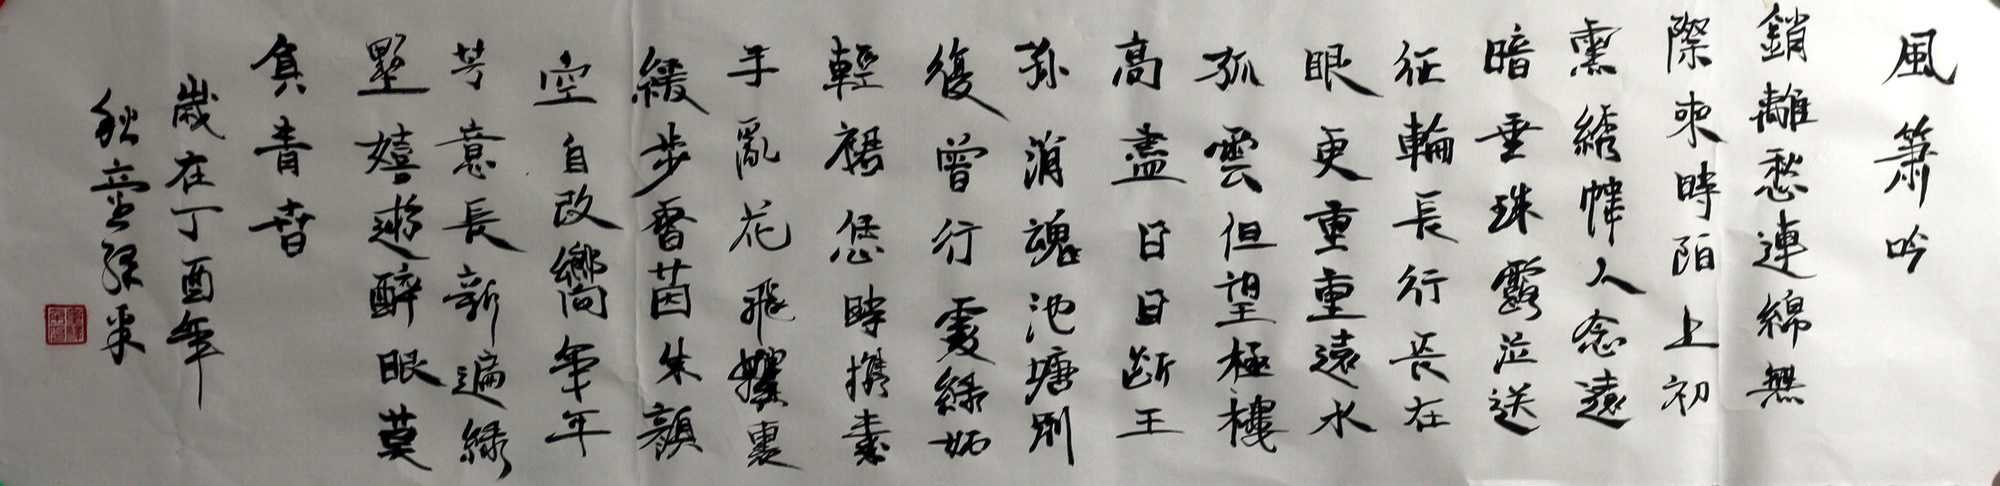 風簫吟
銷離愁連綿無
際來時陌上初
熏綉幃人念遠
暗垂珠露泣送
征輪長行長在
眼更重重遠水
孤雲但望極樓
高盡日目斷王
孫消魂池塘別
後曾行處綠妬
輕裙恁時携素
手亂花飛絮裏
緩步香茵朱顏
空自改嚮年年
芳意長新遍綠
墅嬉遊醉眼莫
負青春
歲在丁酉年
秋